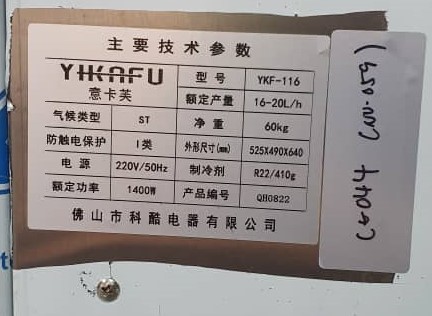 主要技术参数
YIKAFU
意卡芙
型号 YKF-116
额定产量 16-20L/h
气候类型 ST 净重 60kg
防触电保护 I类 外形尺寸(mm) 525X490X640
电源 220V/50Hz 制冷剂 R22/410g
额定功率 1400W 产品编号 QH0822
佛山市科酷电器有限公司